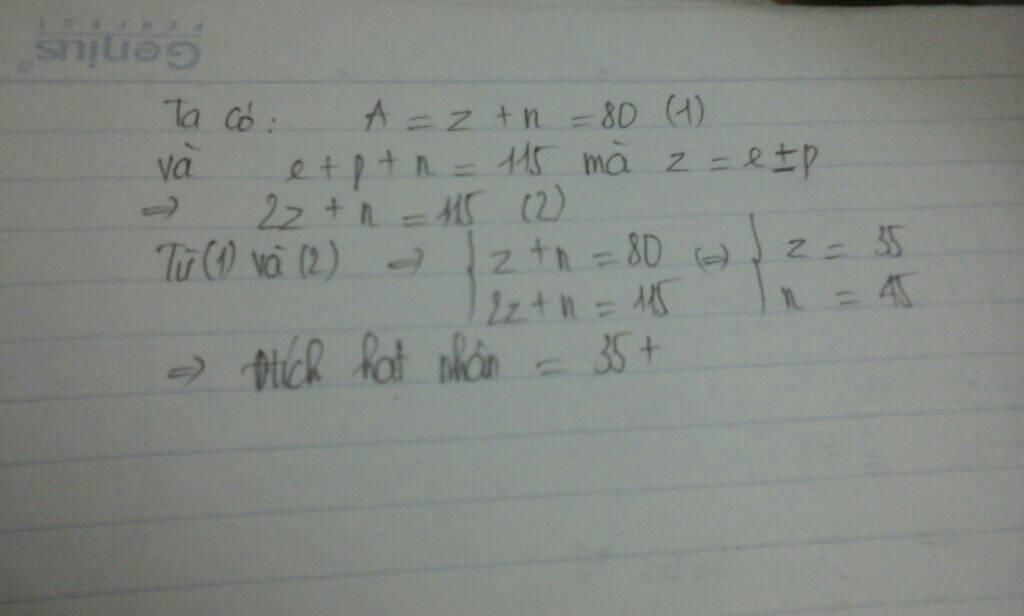 Genius
PERFECT
Ta có: A = z + n = 80 (1)
và e + p + n = 115 mà z = e = p
=> 2z + n = 115 (2)
Từ (1) và (2) => { z + n = 80 <=> { z = 35
2z + n = 115 n = 45
=> Đtích hạt nhân = 35+